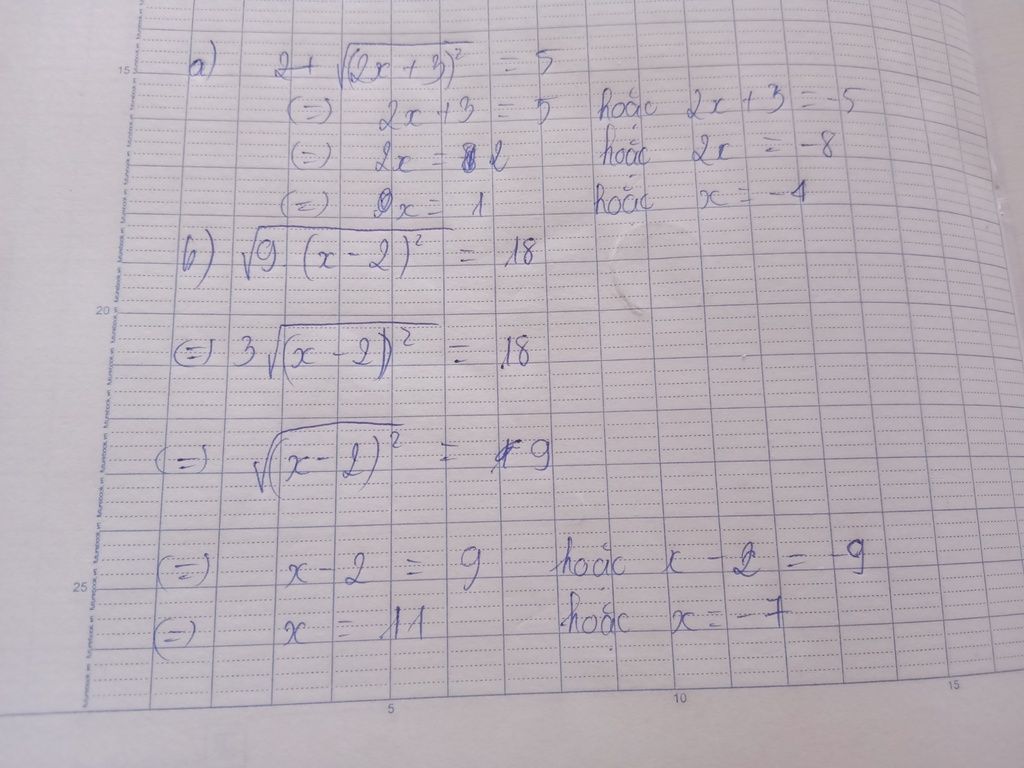 a) 2+ √(2x+3)² = 5
(=) 2x+3 = 5 hoặc 2x+3 = -5
(=) 2x = 2 hoặc 2x = -8
(=) x = 1 hoặc x = -4
15
b) √9.(x-2)² = 18
20
(=) 3√(x-2)² = 18
(=) √(x-2)² = 9
(=) x-2 = 9 hoặc x-2 = -9
25
(=) x = 11 hoặc x = -7
5 10 15